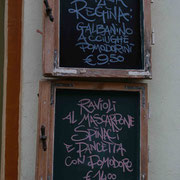 REGINA:
GALBANINO
ACCIUGHE
POMODORINI
€ 9.50
RAVIOLI
AL MASCARPONE
SPINACI
E PANCETTA
CON POMODORO
€ 14.00